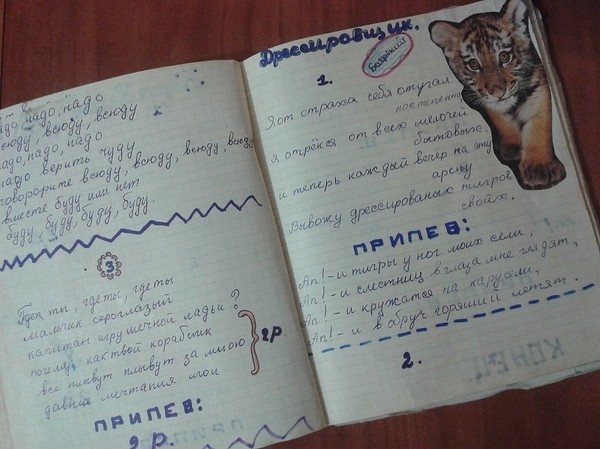 надо, надо, надо
всюду, всюду, всюду
надо, надо, надо
надо верить чуду
всюду, всюду, всюду, всюду
вместе буду или нет
буду, буду, буду, буду.
3
Где ты, где ты, где ты
мальчик сероглазый
капитан игрушечной ладьи ?
почему как твой кораблик
все плывут плывут за мною
давние мечтания мои
2р
ПРИПЕВ:
2 р.
Дрессировщик.
Боярский
1.
Я от страха себя отучал
постепенно
я отрёкся от всех мелочей
бытовых.
и теперь каждый вечер на эту
арену
Вывожу дрессированых тигров
своих.
ПРИПЕВ:
Ап! - и тигры у ног моих сели,
Ап! - и с лестниц в глаза мне глядят,
Ап! - и кружатся на карусели,
Ап! - и в обруч горящий летят.
2.
КОНЕЦ